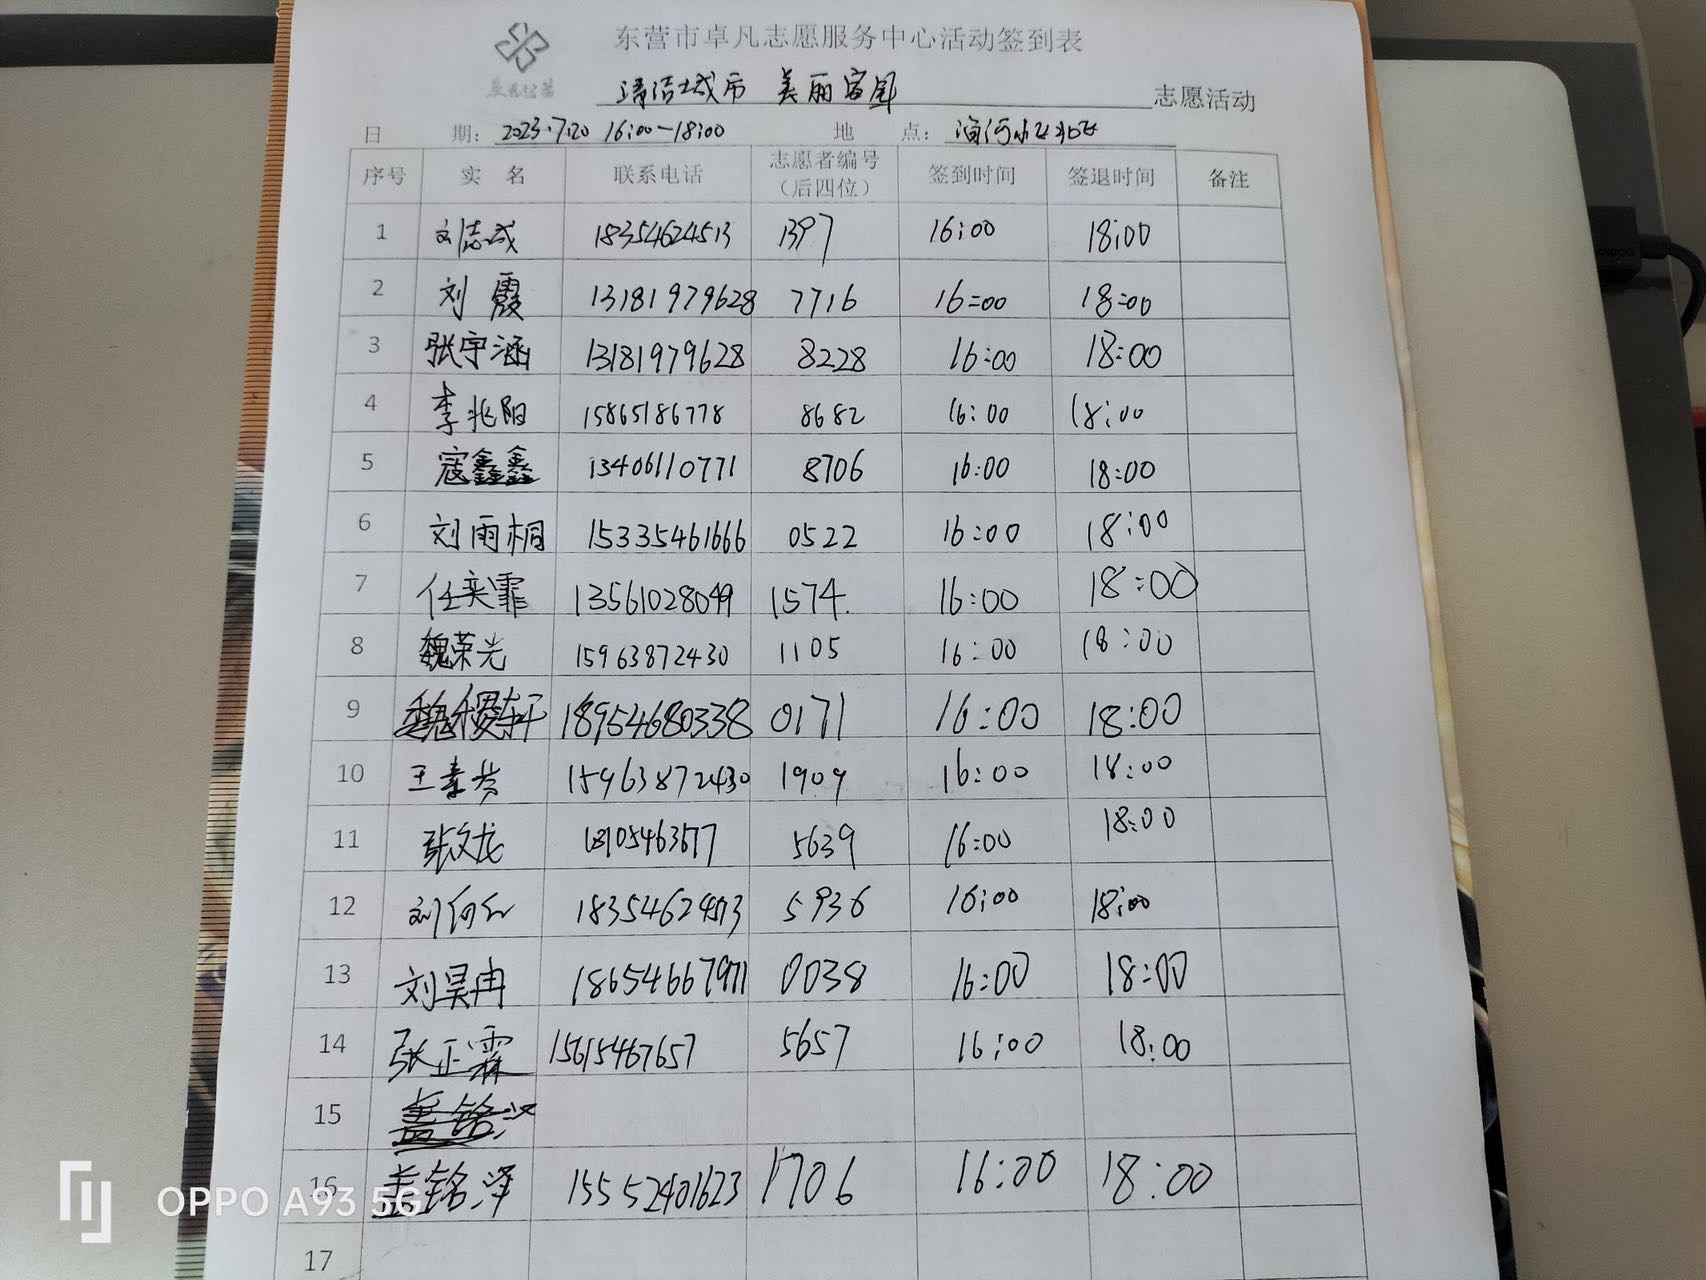 东营市卓凡志愿服务中心活动签到表
卓凡公益
清洁城市 美丽家园 志愿活动
日 期: 2023.7.20 16:00-18:00 地 点: 海河小区北区
序号 实 名 联系电话 志愿者编号(后四位) 签到时间 签退时间 备注
1 刘志成 18354624513 1397 16:00 18:00
2 刘 霞 13181979628 7716 16:00 18:00
3 张宇涵 13181979628 8228 16:00 18:00
4 李兆阳 15865186778 8682 16:00 18:00
5 寇鑫鑫 13406110771 8706 16:00 18:00
6 刘雨桐 15335461666 0522 16:00 18:00
7 任奕霏 13561028049 1574. 16:00 18:00
8 魏荣光 15963872430 1105 16:00 18:00
9 18954680338 0171 16:00 18:00
10 王素芬 15963872430 1909 16:00 18:00
11 张文龙 5639 16:00 18:00
12 18354624513 5936 16:00 18:00
13 刘昊冉 18654667971 0038 16:00 18:00
14 张正霖 15615467657 5657 16:00 18:00
15
16 盖铭泽 15552401623 1706 16:00 18:00
17
OPPO A93 5G